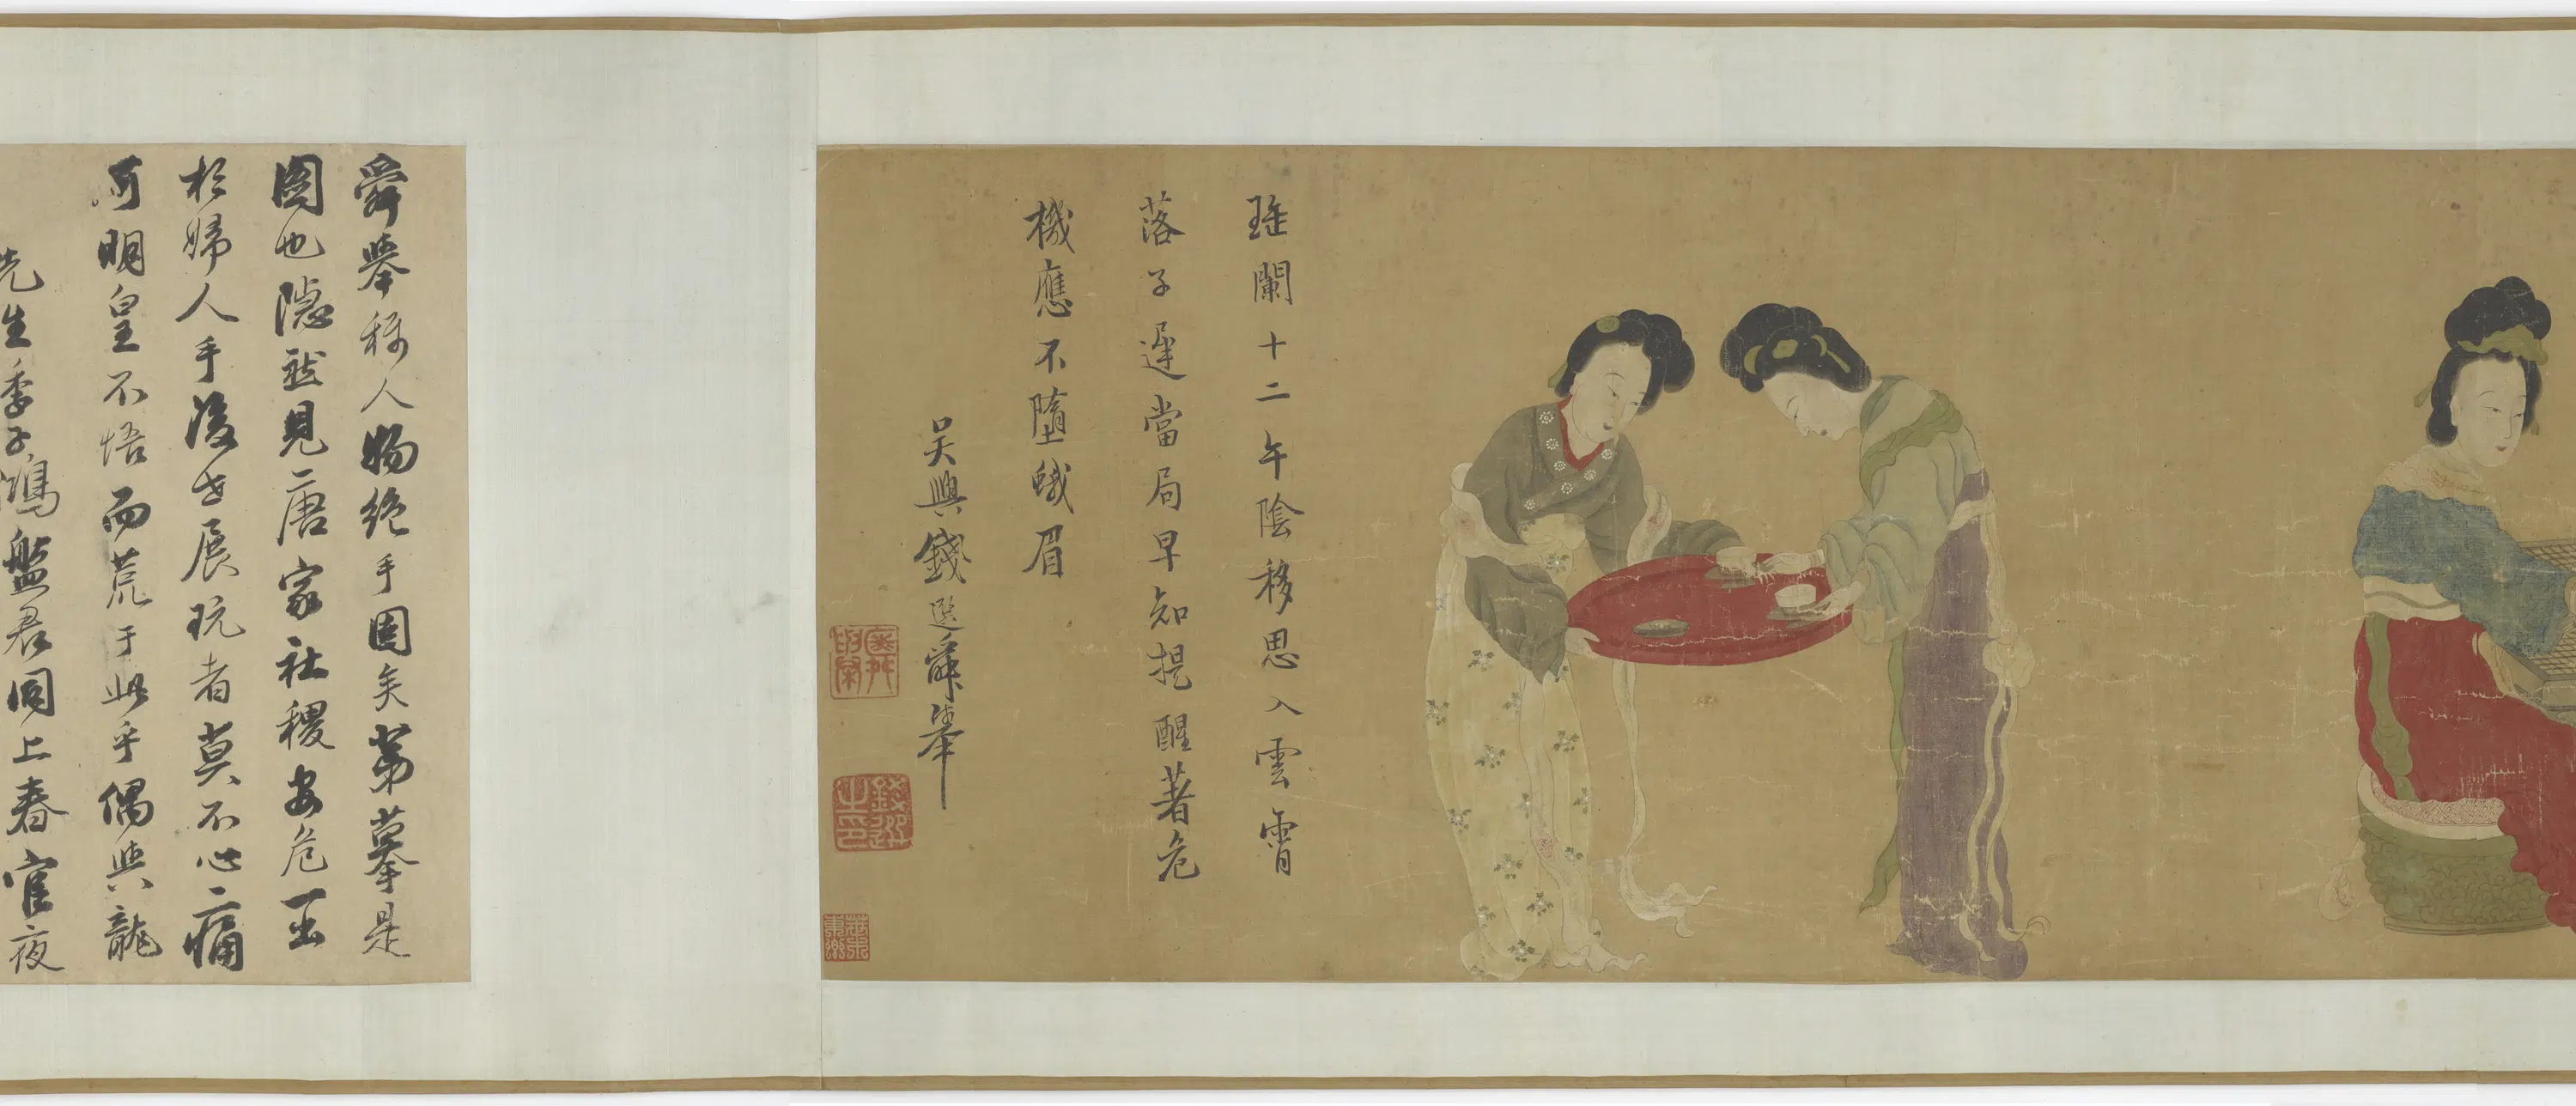 瑤闌十二午陰移思入雲霄
落子遲當局早知提醒著危
機應不墮蛾眉
吳興錢選舜舉
錢選之印
舜舉稱人物絕手固矣第摹是
圖也隱然見唐家社稷安危
於婦人手後世展玩者莫不心痛
何明皇不悟而荒于此乎偶與龍
先生季子鴻盤君同上春官夜